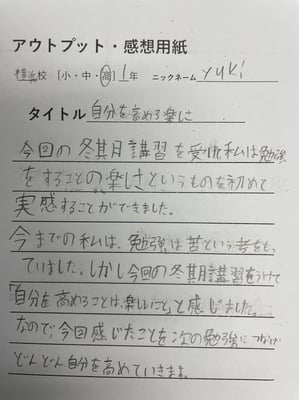 アウトプット・感想用紙
横浜校 [小・中・高] 1年 ニックネーム yuki
タイトル 自分を高める楽しさ
今回の冬期講習を受け私は勉強
をすることの楽しさというものを初めて
実感することができました。
今までの私は、勉強は苦という考をも
っていました。しかし今回の冬期講習をうけて
「自分を高めることは、楽しいこと」と感じました。
なので、今回感じたことを次の勉強につなげ
どんどん自分を高めていきます。